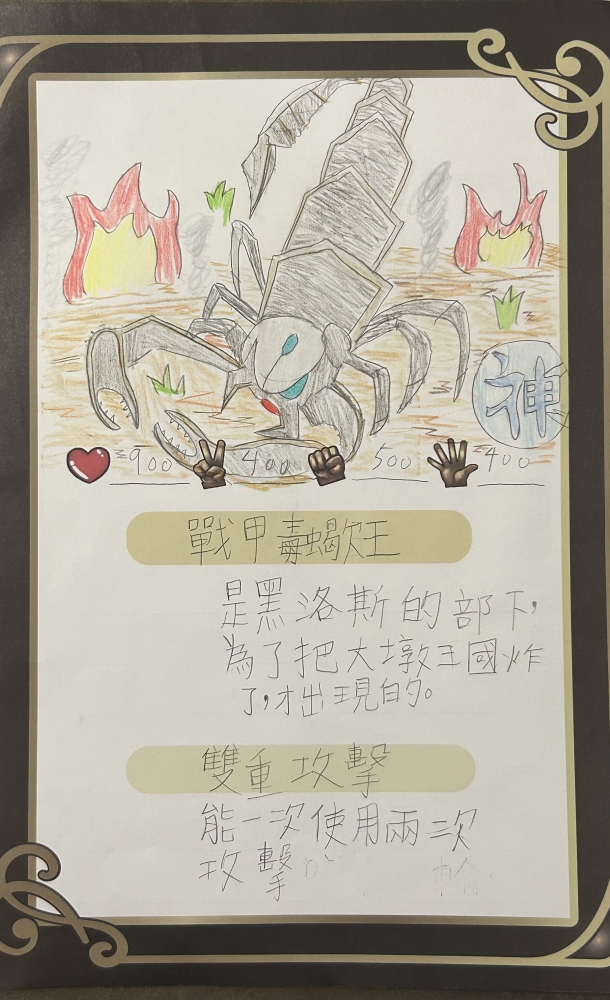 神
900 400 500 400
戰甲毒蝎王
是黑洛斯的部下,
為了把大墩王國炸
了,才出現的。
雙重攻擊
能一次使用兩次
攻擊